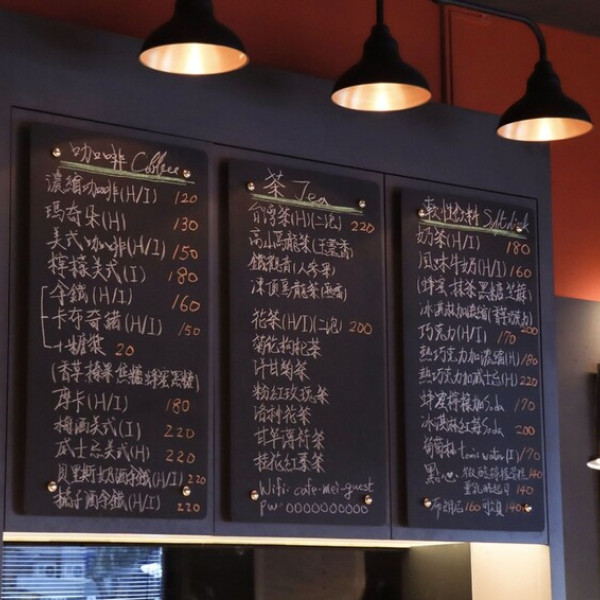 咖啡 Coffee
濃縮咖啡(H/I) 120
瑪奇朵(H) 130
美式咖啡(H/I) 150
檸檬美式(I) 180
拿鐵(H/I) 160
卡布奇諾(H/I) 150
+糖漿 20
(香草 榛果 焦糖 蜂蜜 黑糖)
摩卡(H/I) 180
梅酒美式(I) 220
威士忌美式(H) 220
貝里斯奶酒拿鐵(H/I) 220
橘子酒拿鐵(H/I) 220
茶 Tea
台灣茶(H/I)(二泡) 220
高山烏龍茶
鐵觀音
凍頂烏龍茶
花茶(H/I)(二泡) 200
菊花枸杞茶
洋甘菊茶
粉紅玫瑰茶
洛神花茶
甘草薄荷茶
桂花紅棗茶
Wifi: cafe-mei-guest
pw: 0000000000
軟性飲料 Soft drink
奶茶(H/I) 180
風味牛奶(H/I) 160
(蜂蜜 抹茶 黑糖 芝麻)
冰淇淋加濃縮(香草/巧克力) 200
巧克力(H/I) 170
熱巧克力加濃縮(H) 180
熱巧克力加威士忌(H) 220
蜂蜜檸檬加Soda 170
冰淇淋紅莓Soda 200
葡萄柚tonic water(I) 170
點心: 檸檬蛋糕 140
重乳酪起司 140
布朗尼 160 140